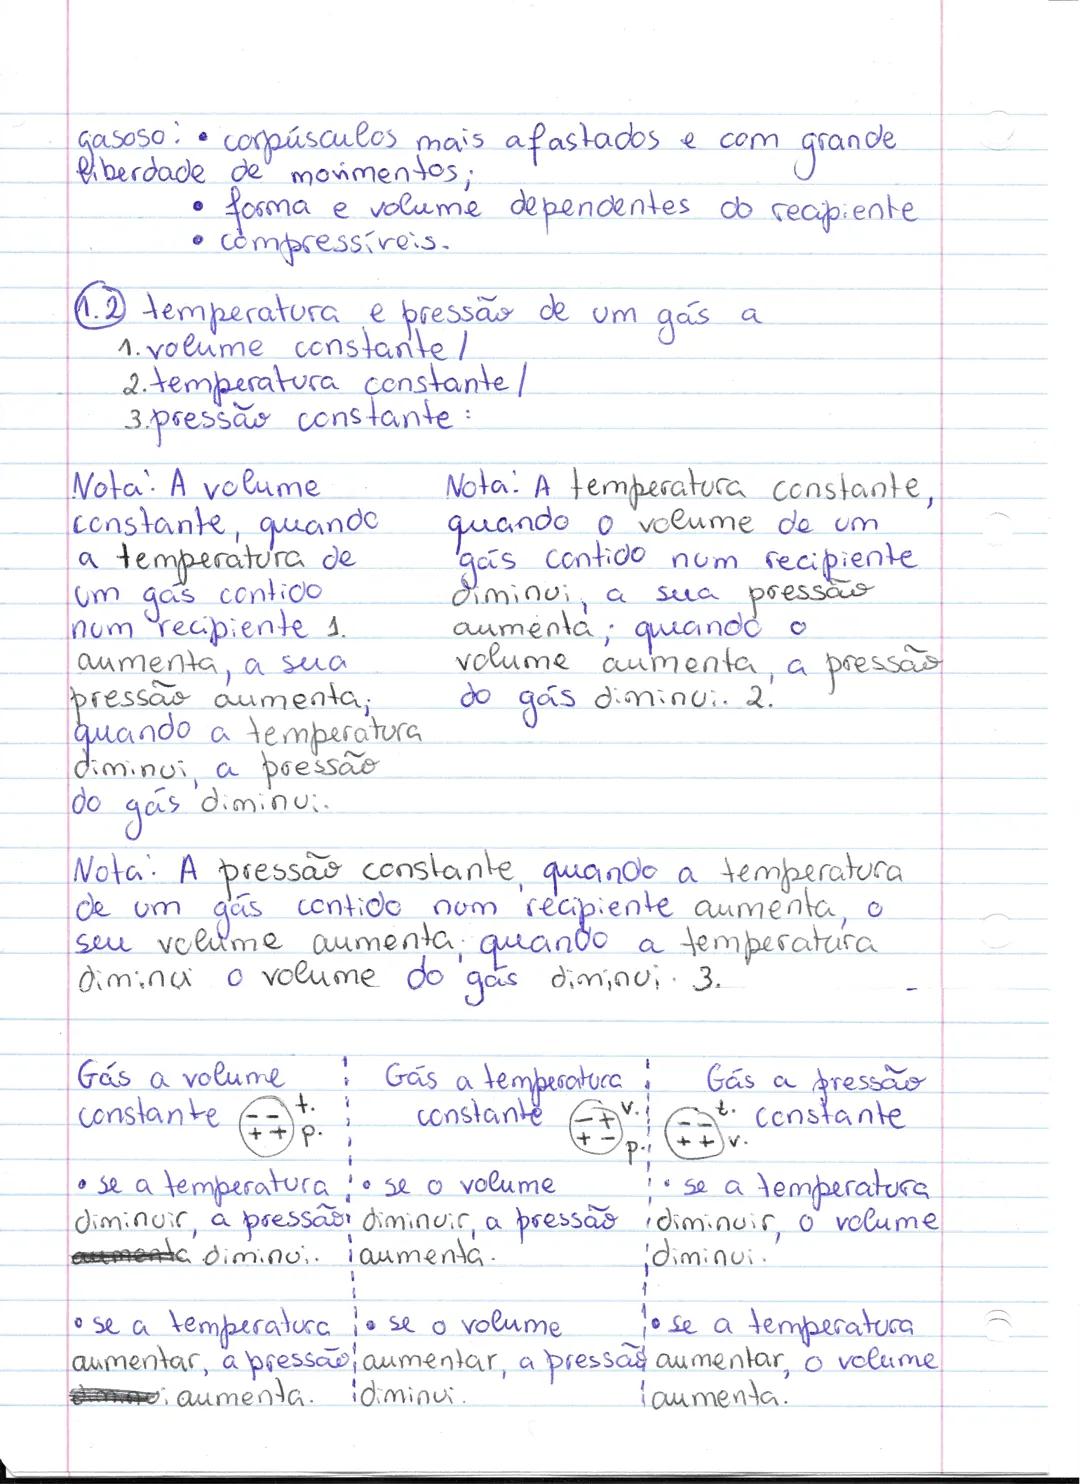 gasoso: • corpúsculos mais afastados e com grande
liberdade de movimentos;
• forma e volume dependentes do recipiente
• compressíveis.
1.2 temperatura e pressão de um gás a
1. volume constante /
2. temperatura constante /
3. pressão constante:
Nota: A volume
constante, quando
a temperatura de
um gás contido
num recipiente 1.
aumenta, a sua
pressão aumenta;
quando a temperatura
diminui, a pressão
do gás diminui.
Nota: A temperatura constante,
quando o volume de um
gás contido num recipiente
diminui, a sua pressão
aumenta; quando o
volume aumenta, a pressão
do gás diminui. 2.
Nota: A pressão constante, quando a temperatura
de um gás contido num recipiente aumenta, o
seu volume aumenta; quando a temperatura
diminui o volume do gás diminui. 3.
Gás a volume
constante
-- t.
++ p.
• se a temperatura
diminuir, a pressão
aumenta diminui.
• se a temperatura
aumentar, a pressão
diminui aumenta.
Gás a temperatura
constante
-+ v.
+- p.
• se o volume
diminuir, a pressão
aumenta.
• se o volume
aumentar, a pressão
diminui.
Gás a pressão
constante
-- t.
++ v.
• se a temperatura
diminuir, o volume
diminui.
• se a temperatura
aumentar, o volume
aumenta.